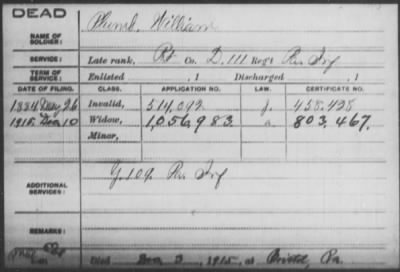 DEAD
NAME OF SOLDIER: William
SERVICE: Late rank, Co. D, 111 Reg't Pa Inf
TERM OF SERVICE: Enlisted , 1 Discharged , 1
DATE OF FILING. CLASS. APPLICATION NO. LAW. CERTIFICATE NO.
1884 26 Invalid, 514,092 J. 458,428
1915, Dec 10 Widow, 1,056,983. a 803,467.
Minor,
ADDITIONAL SERVICES: G. 109 Pa Inf
REMARKS:
Died Dec 3, 1915, at Bristol, Pa.